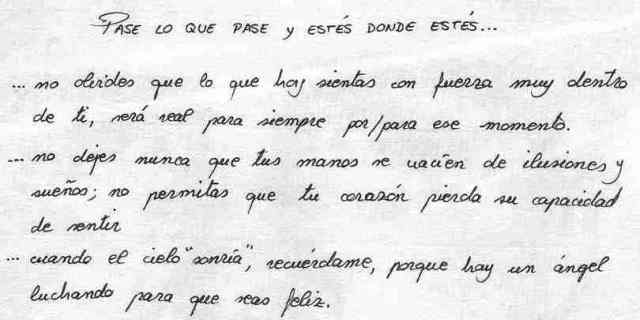 PASE LO QUE PASE y ESTÉS DONDE ESTÉS...
... no olvides que lo que hoy sientas con fuerza muy dentro
de ti, será real para siempre por/para ese momento.
... no dejes nunca que tus manos se vacíen de ilusiones y
sueños; no permitas que tu corazón pierda su capacidad
de sentir
... cuando el cielo "sonría", recuérdame, porque hay un ángel
luchando para que seas feliz.